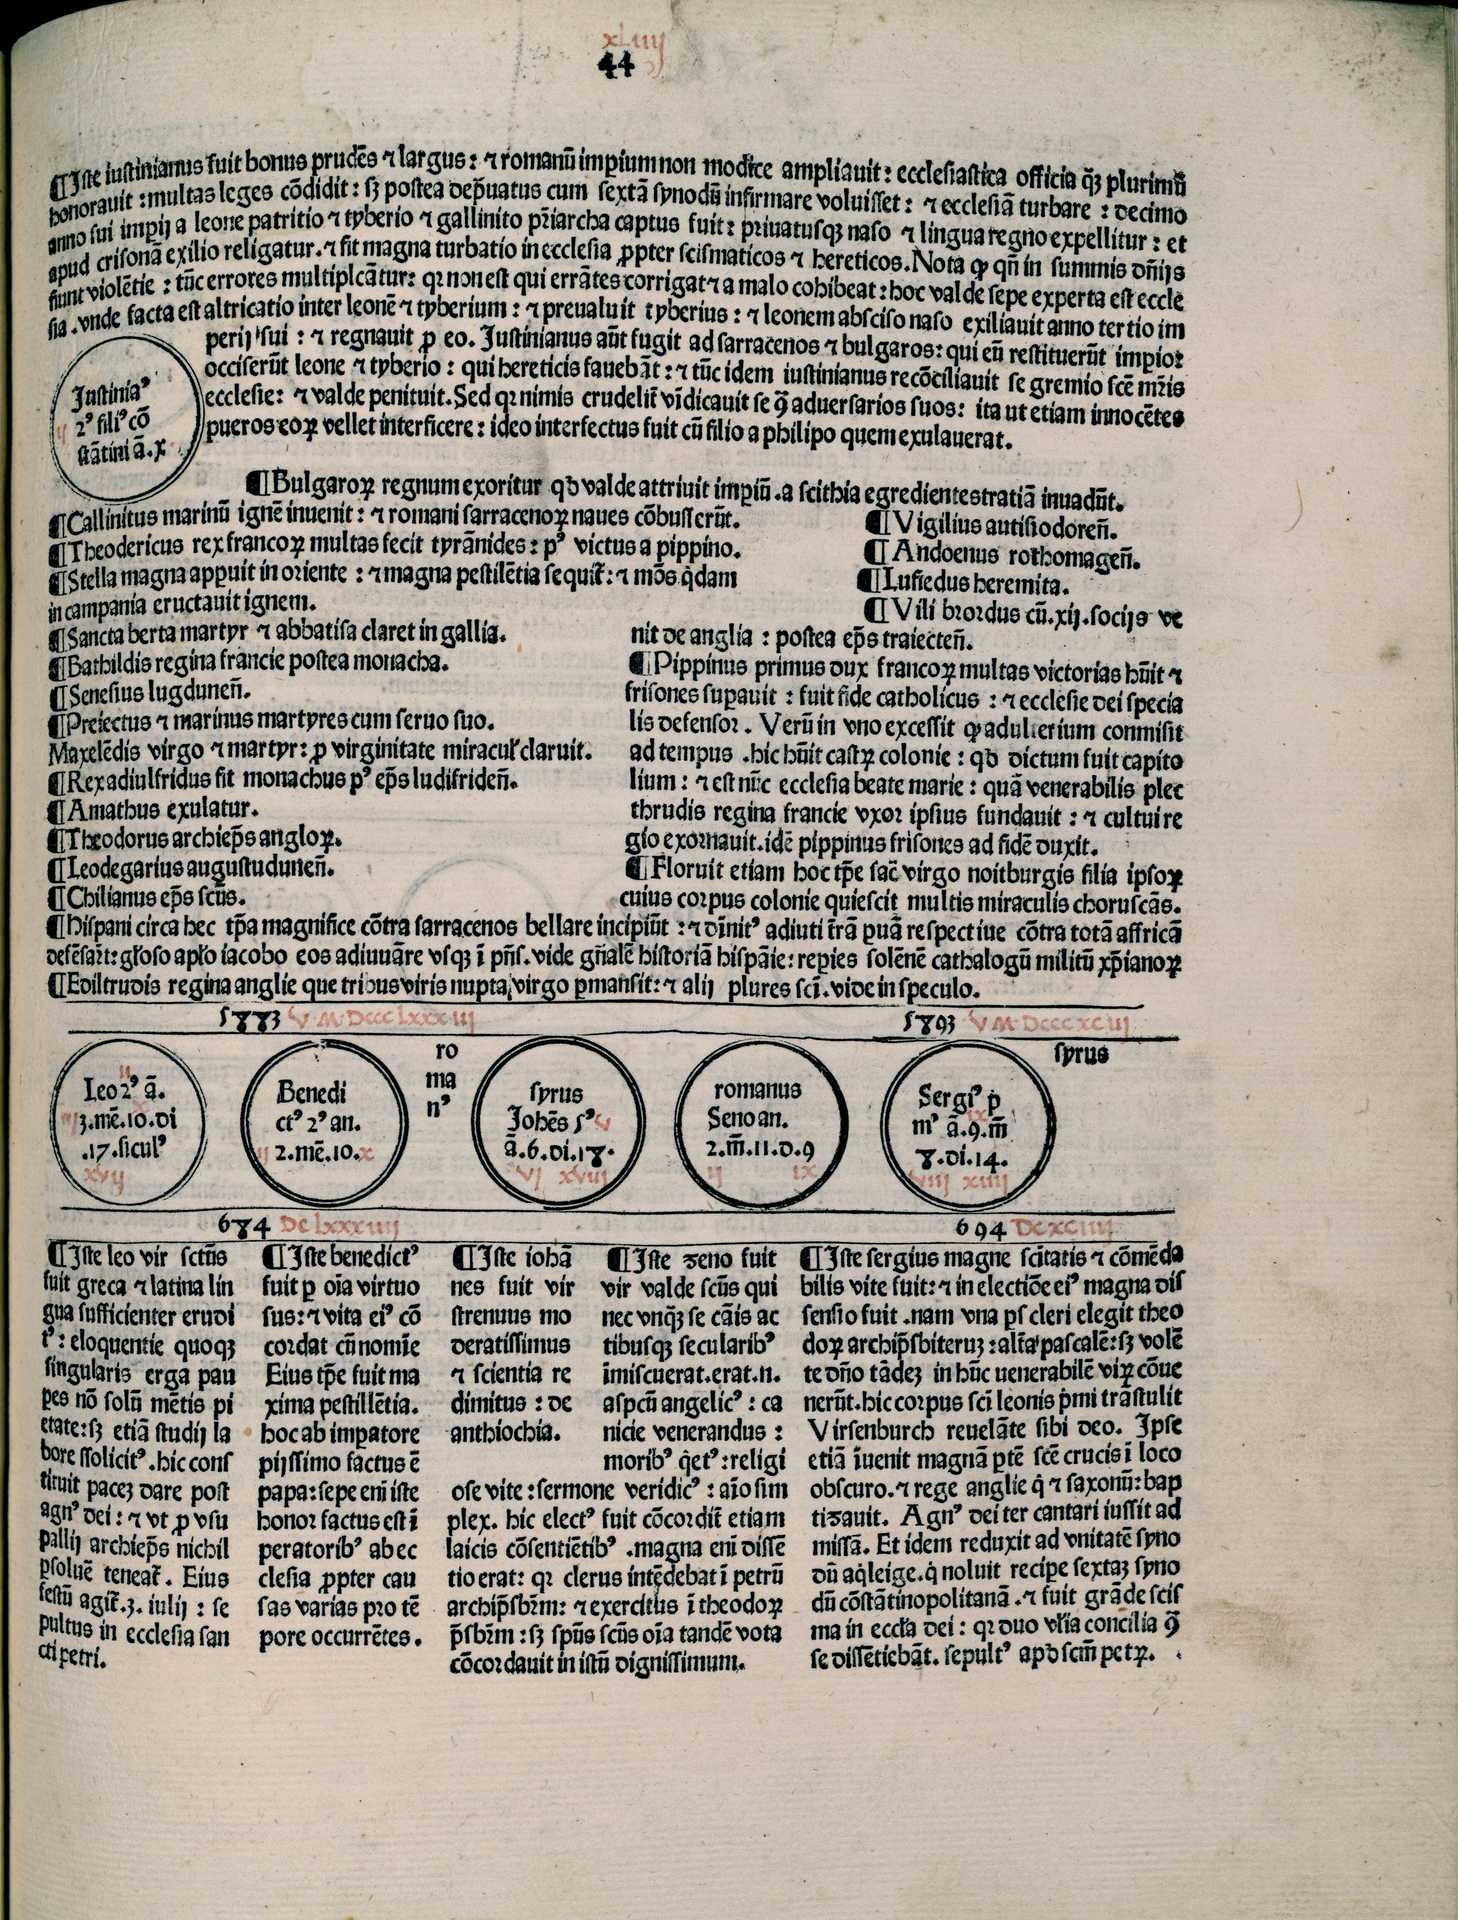 xLiiij
44
¶Iste iustinianus fuit bonus prudẽs ⁊ largus: ⁊ romanũ imꝑium non modice ampliauit: ecclesiastica officia q̃ꝫ plurimũ
honorauit: multas leges cõdidit: sꝫ postea dep̃uatus cum sextã synodũ infirmare voluisset: ⁊ ecclesiã turbare: decimo
anno sui imꝑij a leone patritio ⁊ tyberio ⁊ gallinito pr̃iarcha captus fuit: priuatusqꝫ naso ⁊ lingua regno expellitur: et
apud crisonã exilio religatur. ⁊ fit magna turbatio in ecclesia ꝓpter scismaticos ⁊ hereticos. Nota ꝙ qñ in summis dñijs
fiunt violẽtie: tũc errores multiplicãtur: qꝛ non est qui errãtes corrigat ⁊ a malo cohibeat: hoc valde sepe experta est eccle
sia. vnde facta est altricatio inter leonẽ ⁊ tyberium: ⁊ preualuit tyberius: ⁊ leonem absciso naso exiliauit anno tertio im
perij sui: ⁊ regnauit ꝓ eo. Justinianus aũt fugit ad sarracenos ⁊ bulgaros: qui eũ restituerũt impior
occiserũt leone ⁊ tyberio: qui hereticis fauebãt: ⁊ tũc idem iustinianus recõciliauit se gremio scẽ mr̃is
ecclesie: ⁊ valde penituit. Sed qꝛ nimis crudelit̃ vĩdicauit se ꝯ̃ aduersarios suos: ita ut etiam innocẽtes
pueros eoꝝ vellet interficere: ideo interfectus fuit cũ filio a philipo quem exulauerat.
Justiniaꝰ
2ꝰ filiꝰ cõ
stãtini ã. x
¶Bulgaroꝝ regnum exoritur qđ valde attriuit imꝑiũ. a scithia egredientes tratiã inuadũt.
¶Callinitus marinũ ignẽ inuenit: ⁊ romani sarracenoꝝ naues cõbusserũt.
¶Theodericus rex francoꝝ multas fecit tyrãnides: pꝰ victus a pippino.
¶Stella magna apꝑuit in oriente: ⁊ magna pestilẽtia sequit̃: ⁊ mõs q̇dam
in campania eructauit ignem.
¶Sancta berta martyr ⁊ abbatisa claret in gallia.
¶Bathildis regina francie postea monacha.
¶Senesius lugduneñ.
¶Preiectus ⁊ marinus martyres cum seruo suo.
Maxelẽdis virgo ⁊ martyr: ꝓ virginitate miracuł claruit.
¶Rex adiulfridus fit monachus pꝰ ep̃s ludifrideñ.
¶Amathus exulatur.
¶Theodorus archiep̃s angloꝝ.
¶Leodegarius augustuduneñ.
¶Chilianus ep̃s scũs.
¶Vigilius autisiodoreñ.
¶Andoenus rothomageñ.
¶Lufiedus heremita.
¶Vili brordus cũ. xij. socijs ve
nit de anglia: postea ep̃s traiecteñ.
¶Pippinus primus dux francoꝝ multas victorias hũit ⁊
frisones suꝑauit: fuit fide catholicus: ⁊ ecclesie dei specia
lis defensor. Verũ in vno excessit ꝙ adulterium conmisit
ad tempus. hic hũit castꝝ colonie: qđ dictum fuit capito
lium: ⁊ est nũc ecclesia beate marie: quã venerabilis plec
thrudis regina francie vxor ipsius fundauit: ⁊ cultui re
gio exornauit. idẽ pippinus frisones ad fidẽ duxit.
¶Floruit etiam hoc tp̃e sac̃ virgo noitburgis filia ipsoꝝ
cuius corpus colonie quiescit multis miraculis choruscãs.
¶Hispani circa hec tp̃a magnifice cõtra sarracenos bellare incipiũt: ⁊ diũnitꝰ adiuti tr̃a ꝑuã respectiue cõtra totã affricã
defẽsãt: głoso apło iacobo eos adiuuãre vsqꝫ ĩ p̃ñs. vide gñalẽ historiã hispãie: reꝑies solẽnẽ cathalogũ militũ xp̃ianoꝝ
¶Ediltrudis regina anglie que tribus viris nupta, virgo ꝑmansit: ⁊ alij plures sci̇. vide in speculo.
5883 V M DCCC Lxxxiij
5893 V M DCCCxCiij
Leo 2ꝰ ã.
3. mẽ. 10. di
.17. siculꝰ
xvij
Benedi
ctꝰ 2ꝰ an.
2. mẽ. 10. x
ro
ma
nꝰ
syrus
Johẽs 5ꝰ v
ã. 6. di. 18.
vj xviij
romanus
Seno an.
2. m̃. 11. d. 9
ij ix
Sergiꝰ p̃
mꝰ ã. 9. m̃
8. di. 14.
viij xiiij
syrus
684 DC Lxxxiiij
694 DCxCiiij
¶Iste leo vir sctũs
fuit greca ⁊ latina lin
gua sufficienter erudi
tꝰ: eloquentie quoqꝫ
singularis erga pau
ꝑes nõ solũ mẽtis pi
etate: sꝫ etiã studij la
bore ssolicitꝰ. hic cons
tituit pacez dare post
agnꝰ dei: ⁊ vt ꝓ vsu
pallij archiep̃s nichil
ꝑsoluẽ teneat̃. Eius
festũ agit̃. 3. iulij: se
pultus in ecclesia san
cti petri.
¶Iste benedictꝰ
fuit ꝑ oĩa virtuo
sus: ⁊ vita eiꝰ cõ
cordat cũ nomĩe
Eius tp̃e fuit ma
xima pestillẽtia.
hoc ab imꝑatore
pijssimo factus ẽ
papa: sepe eni̇ iste
honor factus est ĩ
peratoribꝰ ab ec
clesia ꝓpter cau
sas varias pro tẽ
pore occurrẽtes.
¶Iste iohã
nes fuit vir
strenuus mo
deratissimus
⁊ scientia re
dimitus: de
anthiochia.
¶Iste zeno fuit
vir valde scũs qui
nec vnq̃ꝫ se cãis ac
tibusqꝫ secularibꝰ
ĩmiscuerat. erat. n.
aspcũ angelicꝰ: ca
nicie venerandus:
moribꝰ q̇etꝰ: religi
ose vite: sermone veridicꝰ: aĩo sim
plex. hic electꝰ fuit cõcordit̃ etiam
laicis cõsentiẽtibꝰ. magna eni̇ dissẽ
tio erat: qꝛ clerus intẽdebat ĩ petrũ
archip̃sbr̃m: ⁊ exercitus ĩ theodoꝝ
p̃sbr̃m: sꝫ spũs scũs oĩa tandẽ vota
cõcordauit in istũ dignissimum.
¶Iste sergius magne scĩtatis ⁊ cõmẽda
bilis vite fuit: ⁊ in electiõe eiꝰ magna dis
sensio fuit. nam vna ps cleri elegit theo
doꝝ archip̃sbiteruꝫ: alt̃a pascalẽ: sꝫ volẽ
te dño tãdeꝫ in hũc uenerabilẽ viꝝ cõue
nerũt. hic corpus scĩ leonis p̃mi trãstulit
Virsenburch reuelãte sibi deo. Ipse
etiã ĩuenit magnã ꝑtẽ scẽ crucis ĩ loco
obscuro. ⁊ rege anglie q̇ ⁊ saxonũ: bap
tizauit. Agnꝰ dei ter cantari iussit ad
missã. Et idem reduxit ad vnitatẽ syno
dũ aq̇leige. q̇ noluit reciꝑe sextaꝫ syno
dũ cõstãtinopolitanã. ⁊ fuit grãde scis
ma in eccła dei: qꝛ duo vłia concilia ꝯ̃
se dissẽtiebãt. sepultꝰ apđ scm̃ petꝝ.